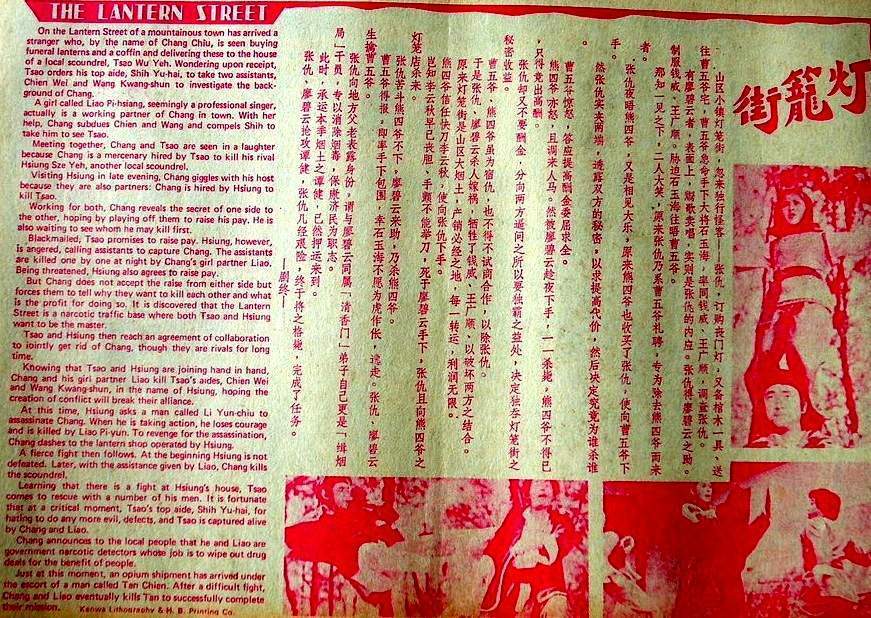 THE LANTERN STREET
On the Lantern Street of a mountainous town has arrived a
stranger who, by the name of Chang Chiu, is seen buying
funeral lanterns and a coffin and delivering these to the house
of a local scoundrel, Tsao Wu Yeh. Wondering upon receipt,
Tsao orders his top aide, Shih Yu-hai, to take two assistants,
Chien Wei and Wang Kwang-shun, to investigate the back-
ground of Chang.
A girl called Liao Pi-hsiang, seemingly a professional singer,
actually is a working partner of Chang in town. With her
help, Chang subdues Chien and Wang and compels Shih to
take him to see Tsao.
Meeting together, Chang and Tsao are seen in a laughter
because Chang is a mercenary hired by Tsao to kill his rival
Hsiung Sze Yeh, another local scoundrel.
Visiting Hsiung in late evening, Chang giggles with his host
because they are also partners: Chang is hired by Hsiung to
kill Tsao.
Working for both, Chang reveals the secret of one side to
the other, hoping by playing off them to raise his pay. He is
also waiting to see whom he may kill first.
Blackmailed, Tsao promises to raise pay. Hsiung, however,
is angered, calling assistants to capture Chang. The assistants
are killed one by one at night by Chang's girl partner Liao.
Being threatened, Hsiung also agrees to raise pay.
But Chang does not accept the raise from either side but
forces them to tell why they want to kill each other and what
is the profit for doing so. It is discovered that the Lantern
Street is a narcotic traffic base where both Tsao and Hsiung
want to be the master.
Tsao and Hsiung then reach an agreement of collaboration
to jointly get rid of Chang, though they are rivals for long
time.
Knowing that Tsao and Hsiung are joining hand in hand,
Chang and his girl partner Liao kill Tsao's aides, Chien Wei
and Wang Kwang-shun, in the name of Hsiung, hoping the
creation of conflict will break their alliance.
At this time, Hsiung asks a man called Li Yun-chiu to
assassinate Chang. When he is taking action, he loses courage
and is killed by Liao Pi-yun. To revenge for the assassination,
Chang dashes to the lantern shop operated by Hsiung.
A fierce fight then follows. At the beginning Hsiung is not
defeated. Later, with the assistance given by Liao, Chang kills
the scoundrel.
Learning that there is a fight at Hsiung's house, Tsao
comes to rescue with a number of his men. It is fortunate
that at a critical moment, Tsao's top aide, Shih Yu-hai, for
hating to do any more evil, defects, and Tsao is captured alive
by Chang and Liao.
Chang announces to the local people that he and Liao are
government narcotic detectors whose job is to wipe out drug
deals for the benefit of people.
Just at this moment, an opium shipment has arrived under
the escort of a man called Tan Chien. After a difficult fight,
Chang and Liao eventually kills Tan to successfully complete
their mission.
Kenwa Lithography & H. B. Printing Co.
灯籠街
山区小镇灯笼街，忽来独行怪客——张仇，订购丧门灯，又备棺木一具、送
往曹五爷宅。曹五爷急命手下大将石玉海，率同钱威、王广顺，调查张仇。
有廖碧云者，表面上，鬻歌卖唱，实则是张仇的内应。张仇得廖碧云之助。
制服钱威、王广顺。胁迫石玉海往晤曹五爷。
那知一见之下，二人大笑，原来张仇乃系曹五爷礼聘，专为除去熊四爷而来
者。
张仇夜晤熊四爷，又是相见大乐，原来熊四爷也收买了张仇，使向曹五爷下
手。
然张仇实卖两端，透露双方的秘密，以求提高代价，然后决定究竟为谁杀谁
。
曹五爷惊怒，答应提高酬金委屈求全。
熊四爷亦怒，且调来人马。然被廖碧云趁夜下手，一一杀毙，熊四爷不得已
，只得竞出高酬。
张仇却又不要酬金，分向两方逼问之所以要独霸之益处，决定独吞灯笼街之
秘密收益。
曹五爷、熊四爷虽为宿仇，也不得不试商合作，以除张仇。
于是张仇、廖碧云杀人嫁祸，牺牲了钱威、王广顺、以破坏两方之结合。
原来灯笼街是山区大烟土，产销必经之地，每一转运，利润无限。
熊四爷信任快刀手李云秋，使向张仇下手。
岂知李云秋早已丧胆、手颤不能举刀，死于廖碧云手下，张仇且向熊四爷之
灯笼店杀来。
张仇苦斗熊四爷不下，廖碧云来助，乃杀熊四爷。
曹五爷得报，即率手下包围，幸石玉海不愿为虎作伥，遁走。张仇、廖碧云
生擒曹五爷。
张仇向地方父老表露身份，谓与廖碧云同属「清香门」弟子自己更是「缉烟
局」干员，专以消除烟毒，保粮济民为职志。
此时，承运本季烟土之谭健，已然押运来到。
张仇、廖碧云抢攻谭健，张仇几经艰险，终于将之格毙，完成了任务。
——剧终——